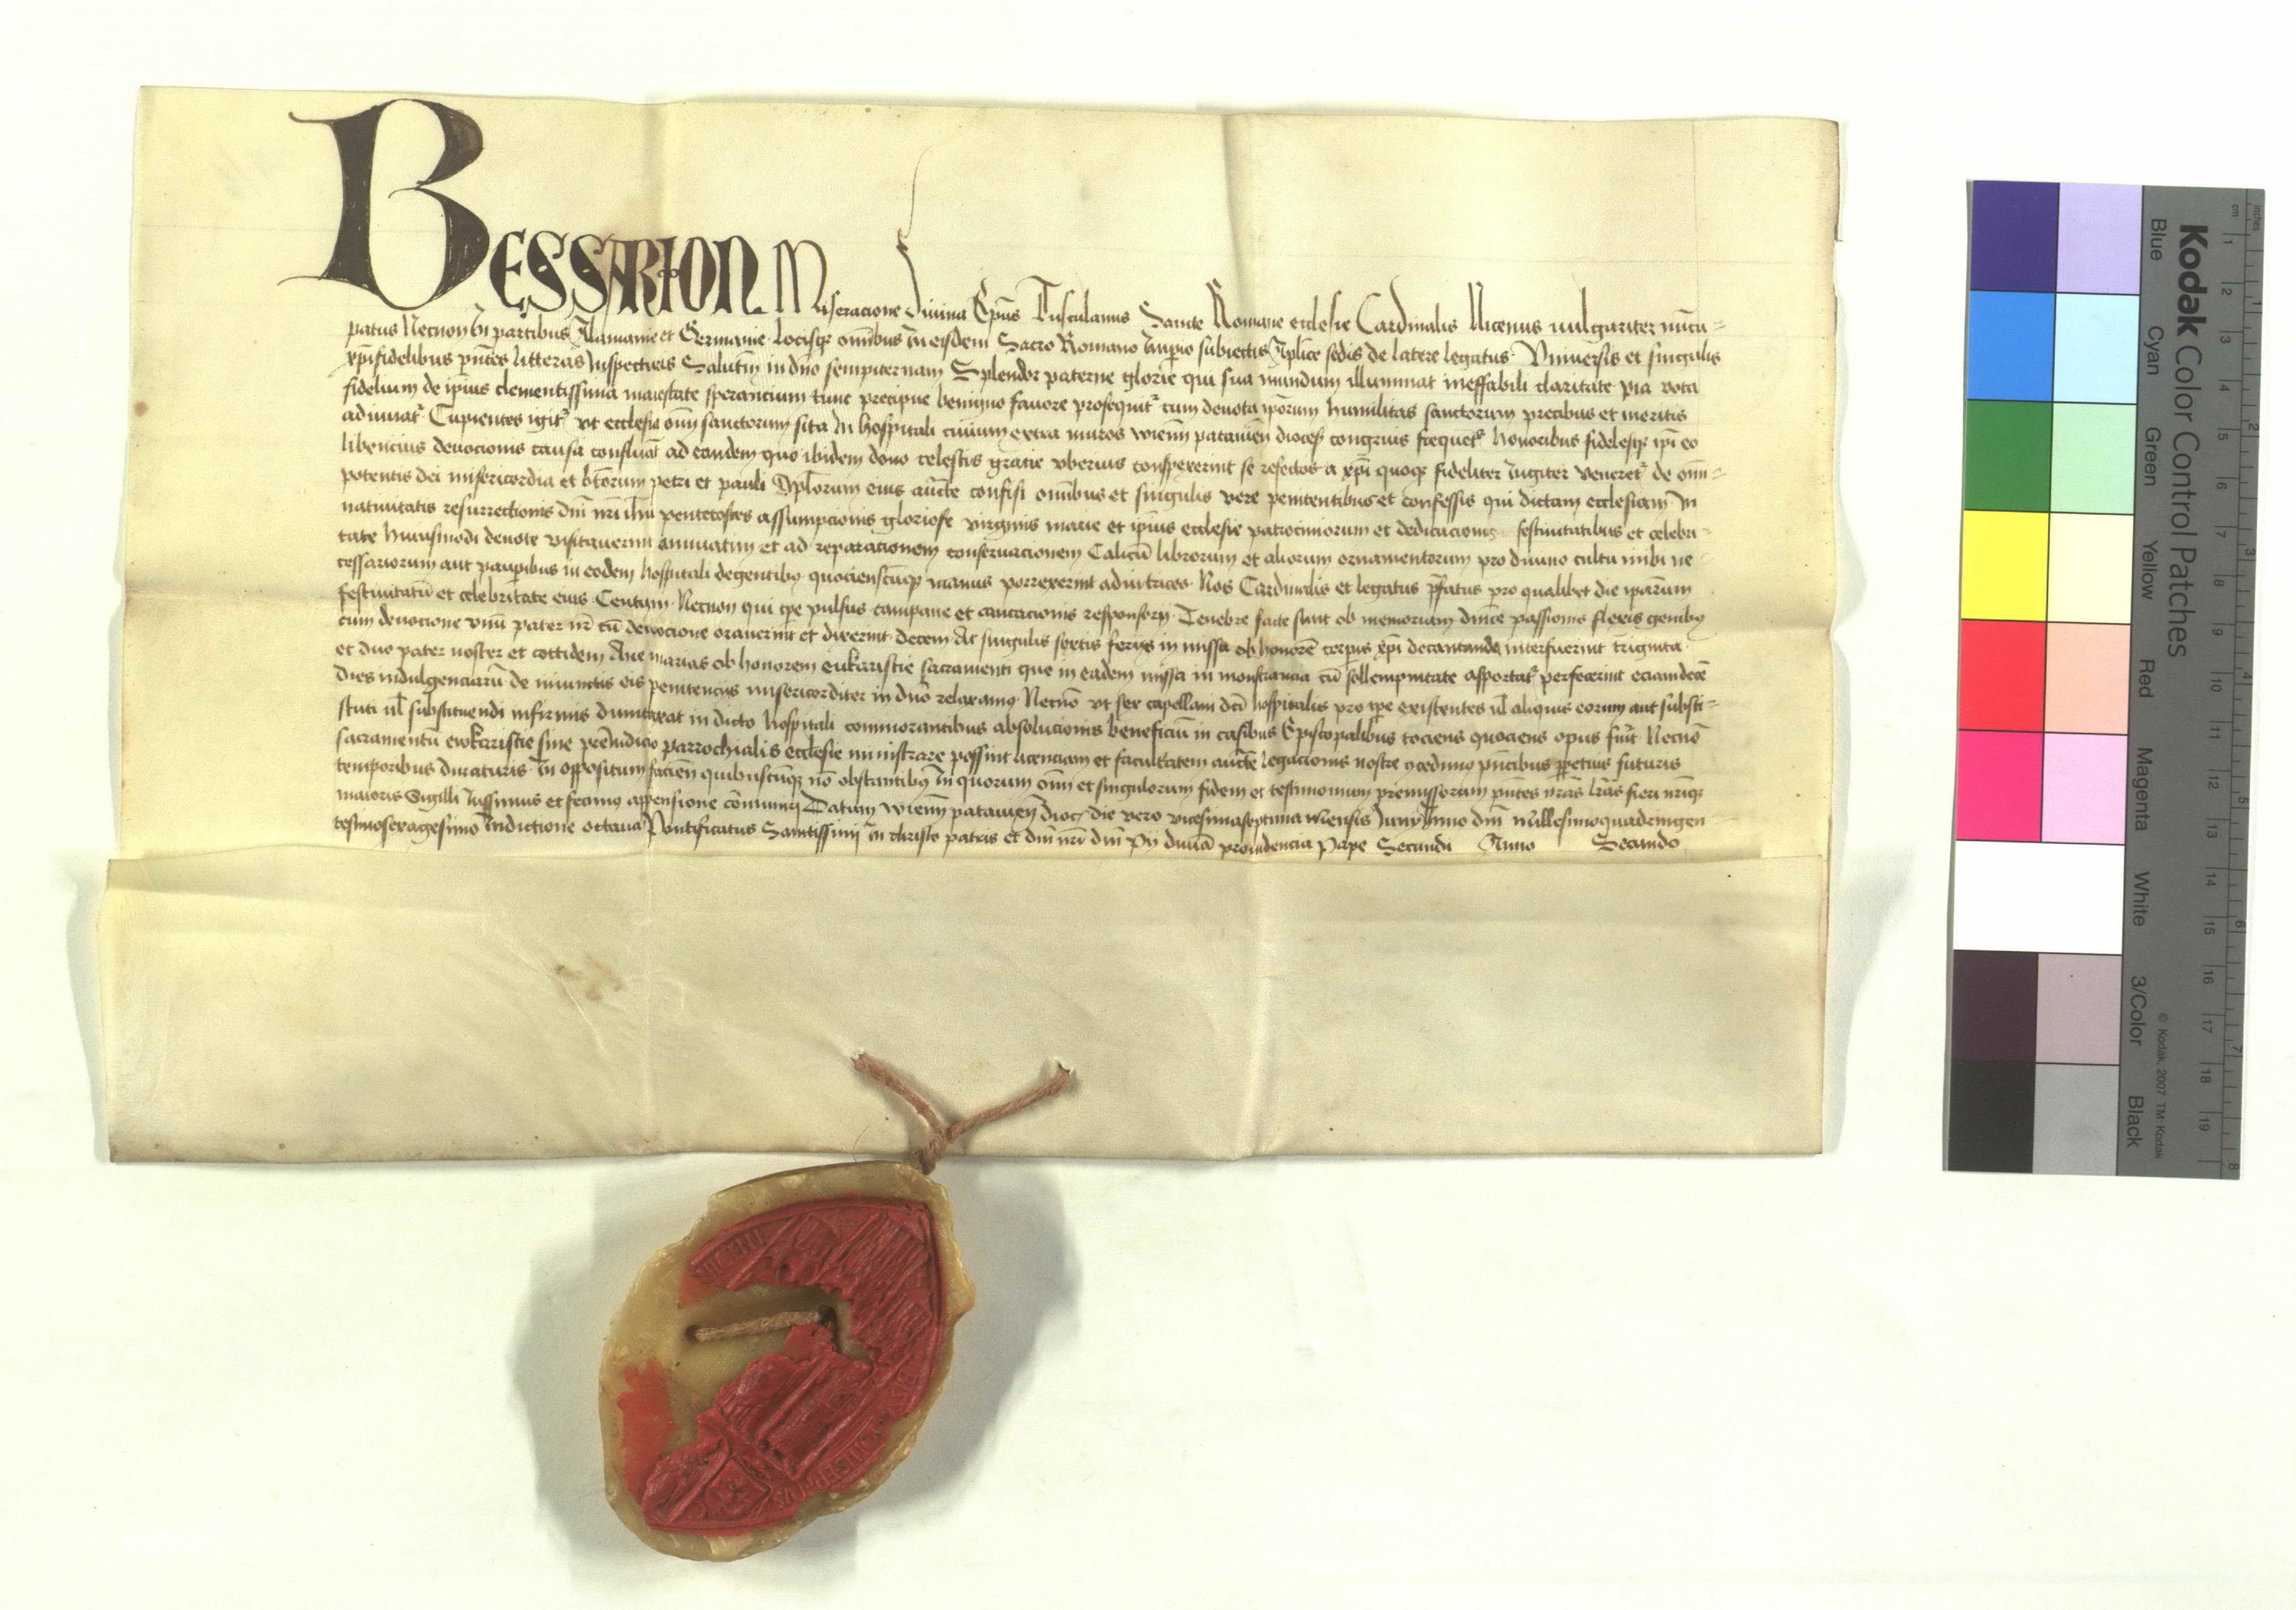 BESSARION Miseracione divina Ep̄us Tusculanus Sancte Romane ecclesie Cardinalis Nicenus vulgariter nūcu=
patus Necnon In partibus Alamanie et Germanie locisq; omībus in eisdem Sacro Romano Imperio subiectis Aplice sedis de latere legatus Vniversis et singulis
xpīfidelibus pn̄tes litteras Inspecturis Salutem in dn̄o sempiternam Splendor paterne glorie qui sua mundum illuminat ineffabili claritate pia vota
fidelium de ipīus clementissima maiestate sperancium tunc precipue benigno favore prosequit᷑ cum devota ipōrum humilitas sanctorum precibus et meritis
adiuvat᷑ Cupientes igit᷑ vt ecclesia om̄i sanctorum sita In hospitali civium extra muros wienn̄ patavien̄ dioces̄ congruis frequēt᷑ honoribus fidelesq; ipī eo
libencius devocionis causa confluāt ad eandem quo ibidem dono celestis gratie vberius conspexerint se refectos a xpī quoq; fideliter Iugiter veneret᷑ de om̄i=
potentis dei misericordia et bt̄orum petri et pauli Apl̄orum eius aucte confisi omībus et singulis vere penitentibus et confessis qui dictam ecclesiam In
nativitatis resurrectionis dn̄i nr̄i ih̄u pentecostes assumpcionis gloriose virginis marie et ipīus ecclesie patrociniorum et dedicacionis festivitatibus et celebri=
tate huiusmodi devote visitaverint annuatim et ad reparacionem conservacionem Calicū librorum et aliorum ornamentorum pro divino cultu inibi ne=
cessariorum aut pauperibus in eodem hospitali degentibꝫ quocienscūq; manus porrexerint adiutrices Nos Cardinalis et legatus p̄fatus pro qualibet die ipārum
festivitatū et celebritate eius Centum Necnon qui tpe pulsus campane et cantacionis responsorij Tenebre facte sunt ob memoriam dn̄ice passionis flexis genibꝫ
cum devocione vnū pater nr̄ cū devocione oraverint et dixerint decem Ac singulis sextis ferijs in missa ob honorē corporis xpī decantanda interfuerint triginta
et duo pater noster et tottidem Ave marias ob honorem eukaristie sacramenti que in eadem missa in monstrancia cū sollempnitate asportat᷑ perfecerint eciam decē
dies indulgenciarū de iniunctis eis penitencijs misericorditer in dn̄o relaxamꝫ Necnō vt sex capellani dc̄i hospitalis pro tpe existentes vl̄ aliquis eorum aut substi=
tuti vl̄ substituendi infirmis dumtaxat in dicto hospitali commorantibus absolucionis beneficiū in casibus Episcopalibus tociens quociens opus fūit Necnō
sacramentū ewkaristie sine preiudicio parrochialis ecclesie ministrare possint licenciam et facultatem aucte legacionis nostre ꝯcedimꝫ pn̄tibus ppetuis futuris
temporibus duraturis In oppositum facien̄ quibuscūq; nō obstantibꝫ In quorum om̄i et singulorum fidem et testimonium premissorum pn̄tes nr̄as lr̄as fieri nr̄iq;
maioris Sigilli Iussimus et fecimꝫ appensione cōmuniri Datum wienn̄ patavien̄ dioc̄ die vero vicesimaseptima mensis Iunij Anno dn̄i millesimoquadringen
tesimosexagesimo Indictione octava Pontificatus Sanctissimi in christo patris et dn̄i nr̄i dn̄i Pij divina providencia Pape Secundi Anno Secundo
Kodak Color Control Patches
Blue Cyan Green Yellow Red Magenta White 3/Color Black
© Kodak, 2007 TM: Kodak
inches 1 2 3 4 5 6 7 8
cm 1 2 3 4 5 6 7 8 9 10 11 12 13 14 15 16 17 18 19